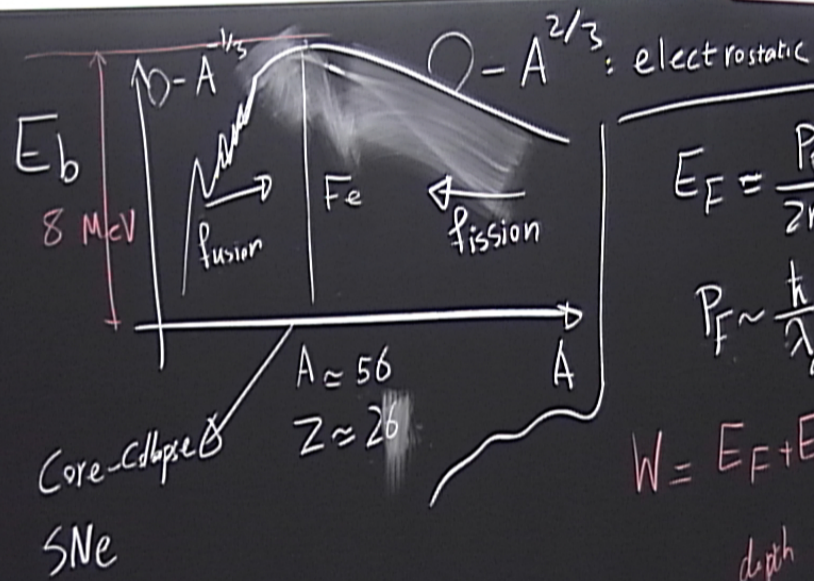 E_b
8 MeV
-A^{-1/3}
-A^{2/3} : electrostatic
fusion
Fe
fission
A
A ≃ 56
Z ≃ 26
Core-Collapse
SNe
E_F =
P_F ~ ħ
W = E_F + E
depth